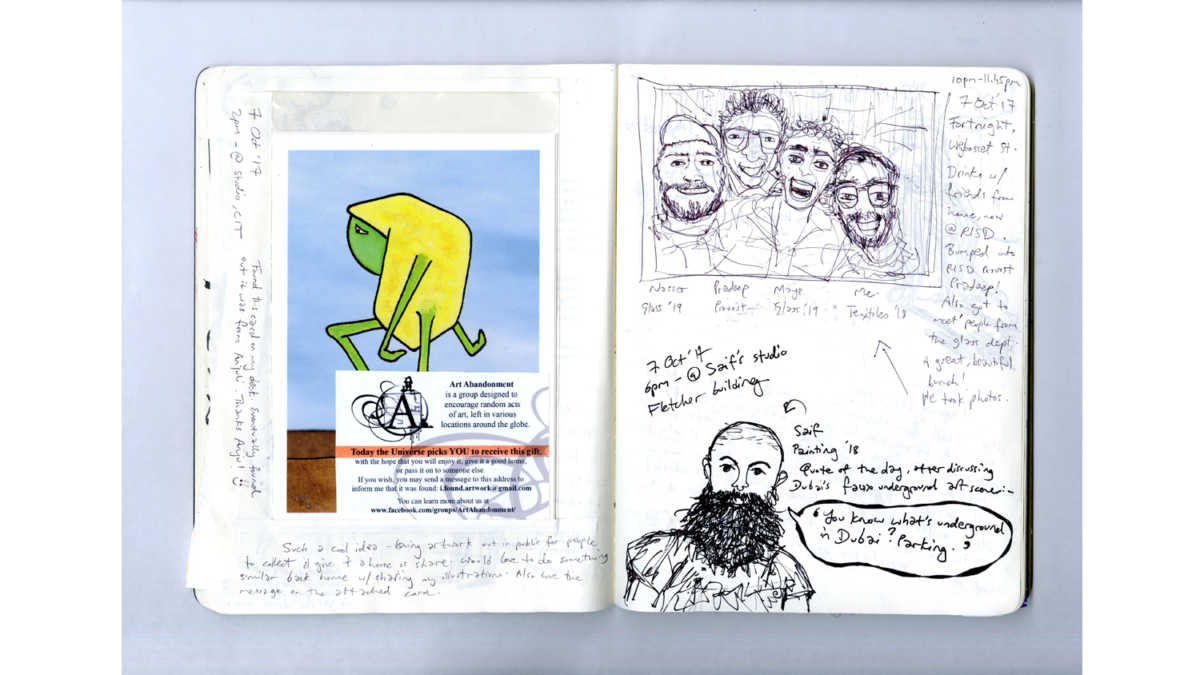 7 Oct '17
2pm - @ Studio, CIT
Found this card on my desk. Eventually found
out it was from Anjuli. Thanks Anju!!
A
Art Abandonment
is a group designed to
encourage random acts
of art, left in various
locations around the globe.
Today the Universe picks YOU to receive this gift,
with the hope that you will enjoy it, give it a good home,
or pass it on to someone else.
If you wish, you may send a message to this address to
inform me that it was found: i.found.artwork@gmail.com
You can learn more about us at
www.facebook.com/groups/ArtAbandonment/
Such a cool idea - leaving artwork out in public for people
to collect & give it a home or share. Would love to do something
similar back home w/ sharing my illustrations. Also love the
message on the attached card.
10pm-11.45pm
7 Oct '17
Fortnight,
Weybosset St.
Drinks w/
friends from
home, now
@ RISD.
Bumped into
RISD Provost
Pradeep!
Also got to
meet people from
the glass dept.
A great, beautiful
bunch!
We took photos.
Nasser
Glass '19
Pradeep
Provost
Glass '19
Me.
Textiles '18
7 Oct '17
6pm - @ Saif's studio
Fletcher building
Saif
Painting '18
Quote of the day, after discussing
Dubai's faux underground art scene:-
"You know what's underground
in Dubai? Parking."